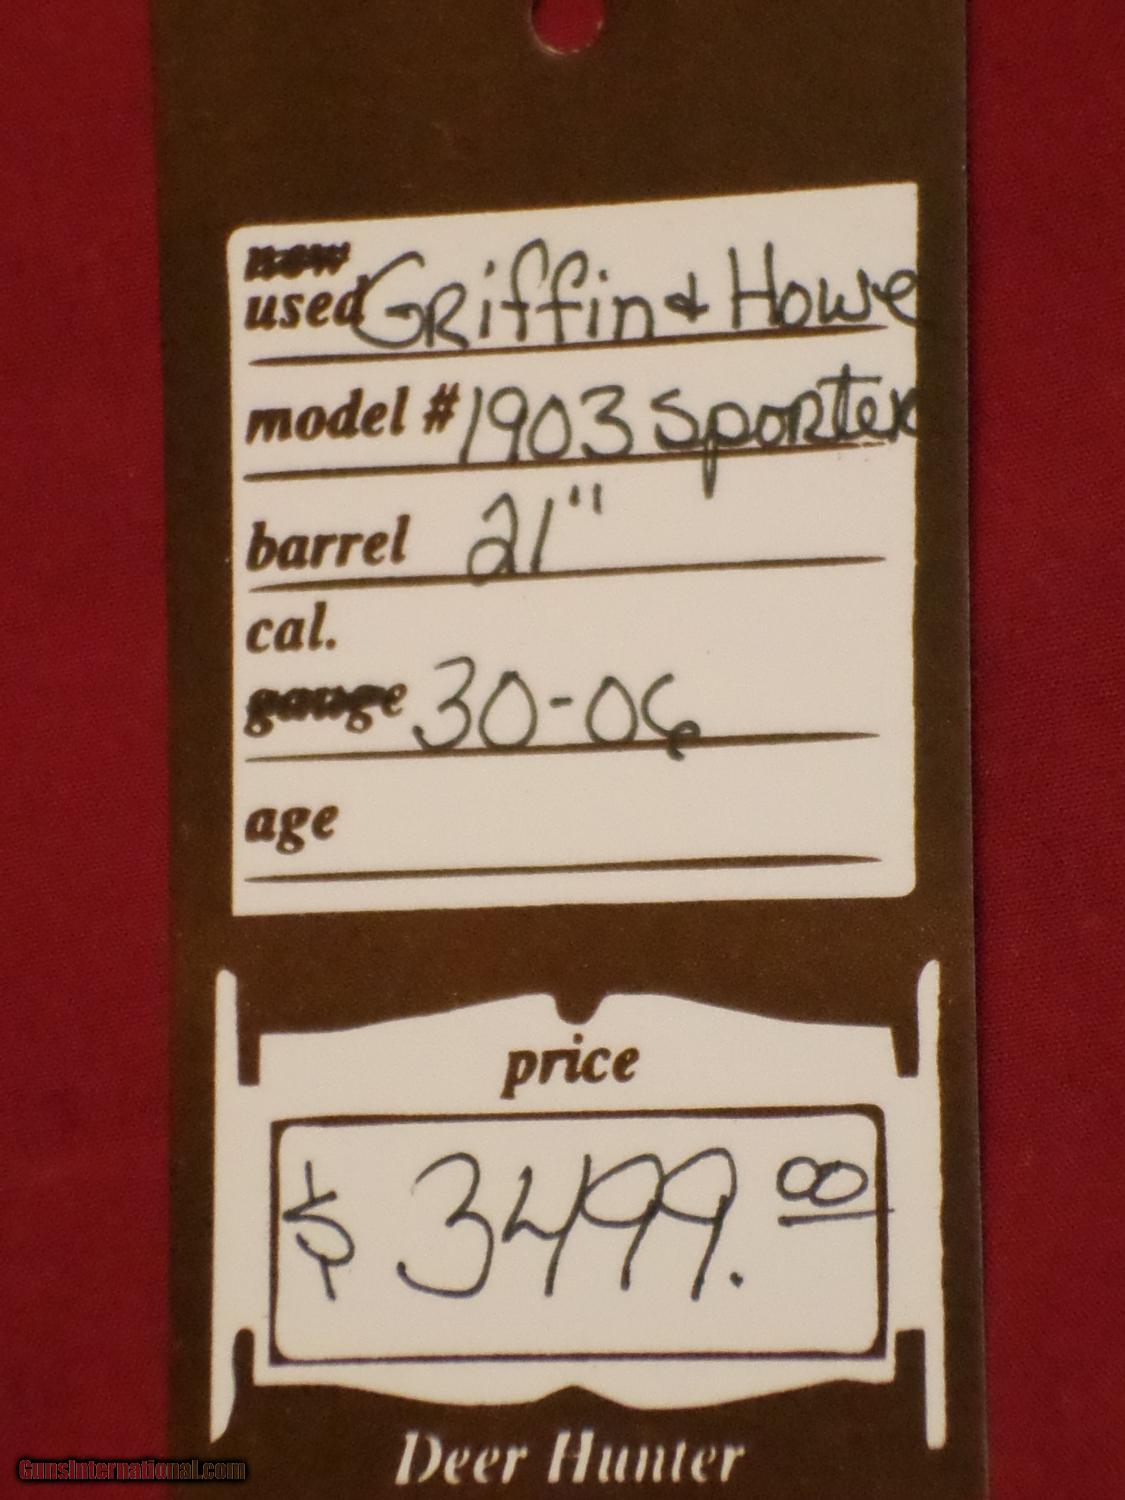 new
used Griffin & Howe
model # 1903 Sporter
barrel 21"
cal.
gauge 30-06
age
price
$ 3499.00
Deer Hunter
GunsInternational.com